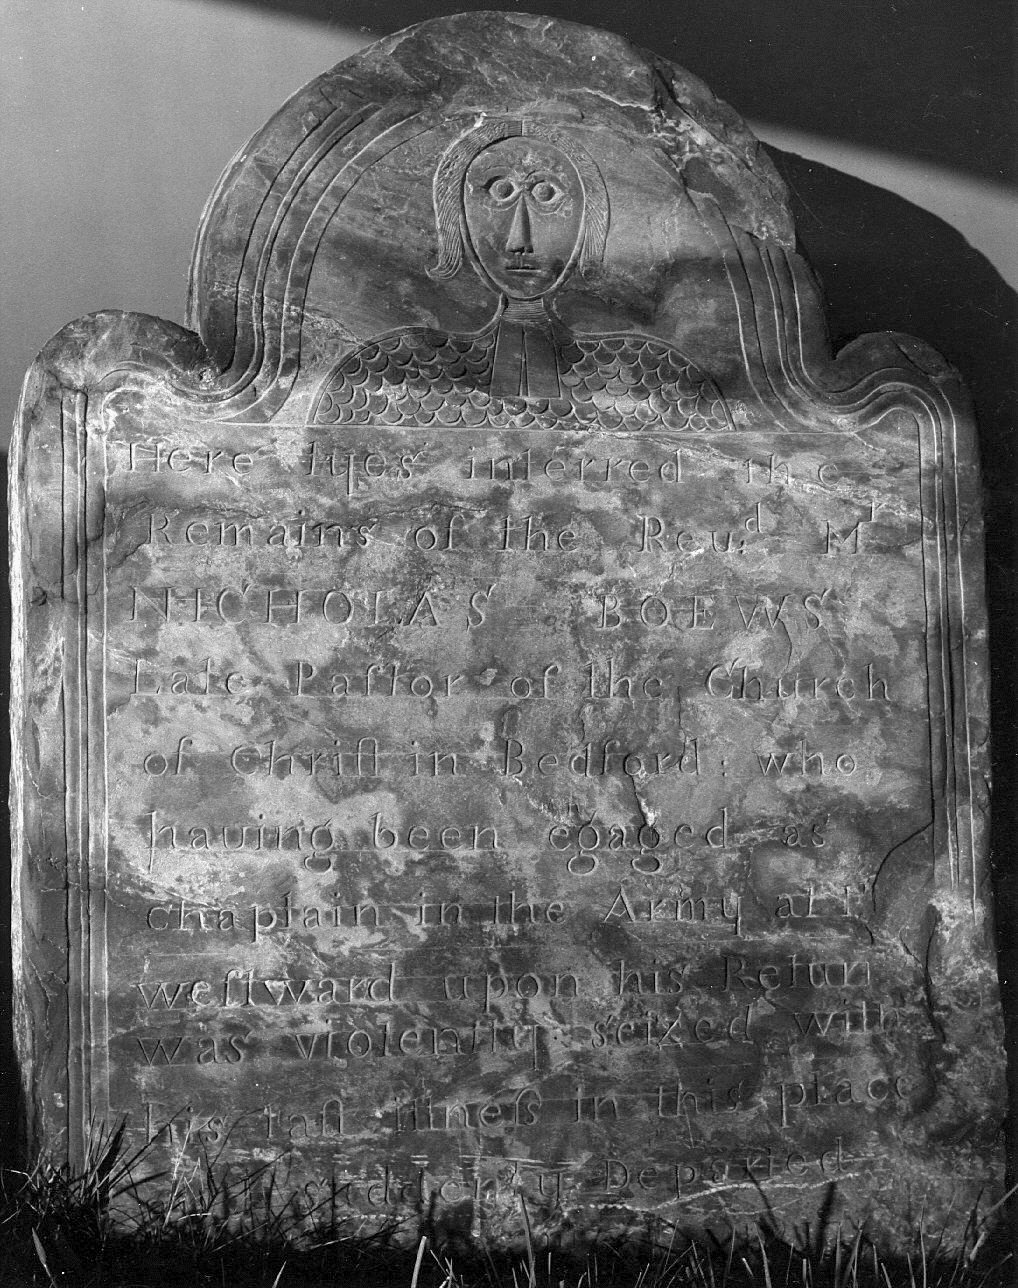 Here lyes interred the
Remains of the Reu.d Mr
NICHOLAS BOEWS
Late Pastor of the Church
of Christ in Bedford : who
hauing been egaged as
chaplain in the Army att
westward upon his Return
was violently seized with
his last illness in this place
& suddenly Departed